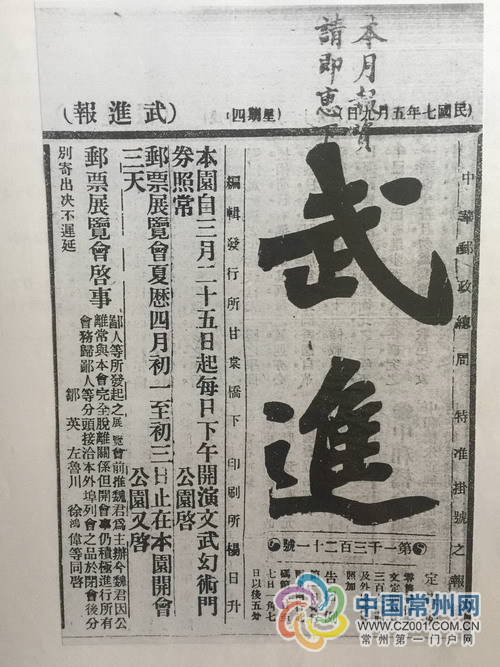 本月報資
請即惠下
武進報
民國七年五月九日
星期四
中華郵政總局特准掛號之報
武進
第一千三百二十一號
編輯發行所甘棠橋下
印刷所楊日升
本園自三月二十五日起每日下午開演文武幻術門
券照常
公園啓
郵票展覽會夏歷四月初一至初三日止在本園開會
三天
公園又啓
郵票展覽會啓事
鄙人等所發起之展覽會前推魏君爲主辦今魏君因公
離常與本會完全脫離關係但開會事仍積極進行所有
會務歸鄙人等分頭接洽本外埠列會之品於閉會後分
別寄出决不遲延
鄒英 左魯川 徐鴻偉等同啓
定
告
中国常州网
WWW.CZ001.COM.CN
常州第一门户网